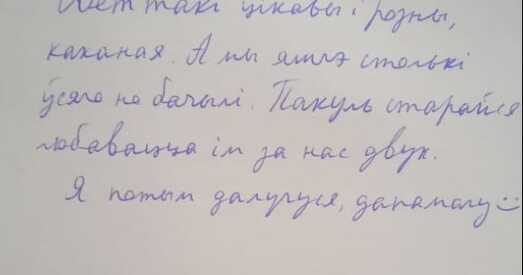 Свет такі цікавы і розны,
каханая. А мы яшчэ столькі
ўсяго не бачылі. Пакуль старайся
любавацца ім за нас двух.
Я потым далучуся, дапамагу :)